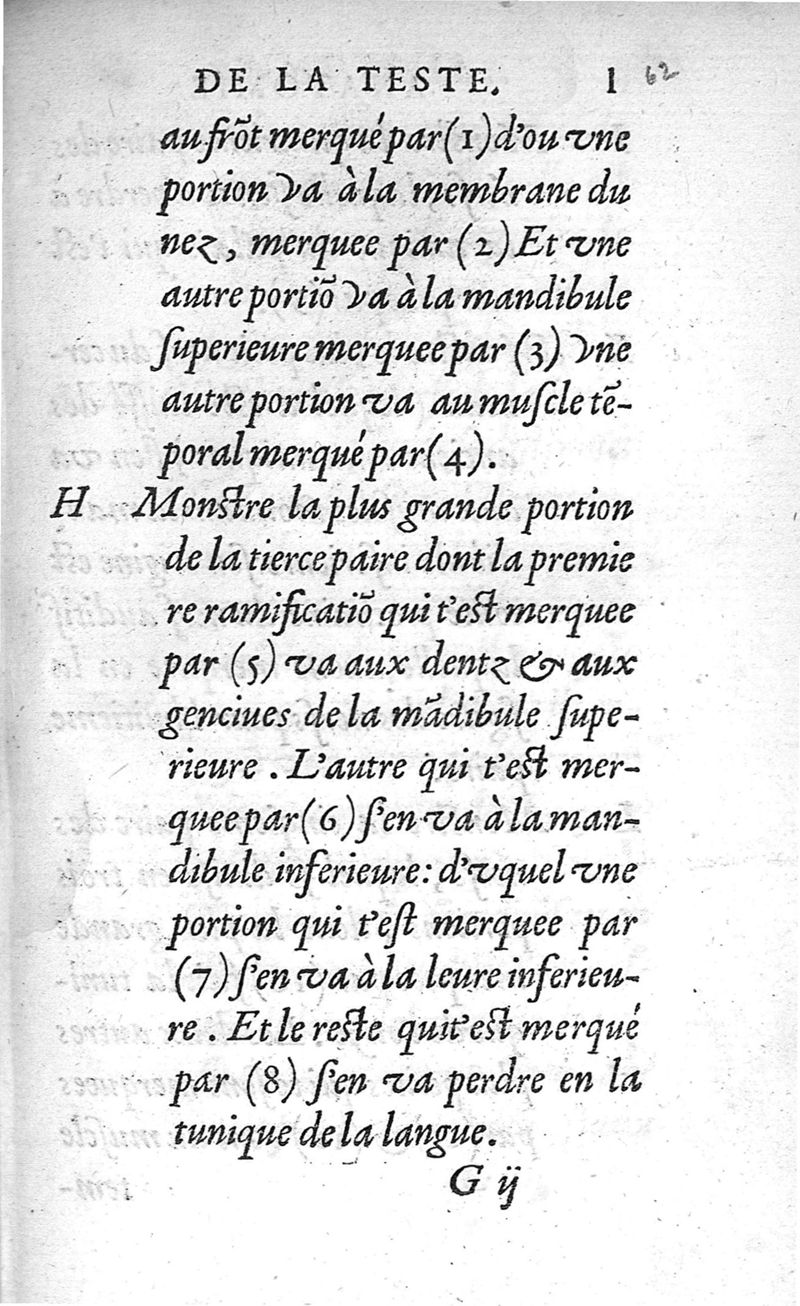 DE LA TESTE. I 62
au frõt merqué par (1) d'ou vne
portion va à la membrane du
nez, merquee par (2) Et vne
autre portiõ va à la mandibule
ſuperieure merquee par (3) vne
autre portion va au muſcle tẽ-
poral merqué par (4).
H Monſtre la plus grande portion
de la tierce paire dont la premie
re ramificatiõ qui t'eſt merquee
par (5) va aux dentz & aux
genciues de la mãdibule ſupe-
rieure. L'autre qui t'eſt mer-
quee par (6) ſ'en va à la man-
dibule inferieure: d'vquel vne
portion qui t'eſt merquee par
(7) ſ'en va à la leure inferieu-
re. Et le reſte qui t'eſt merqué
par (8) ſ'en va perdre en la
tunique de la langue.
G ij